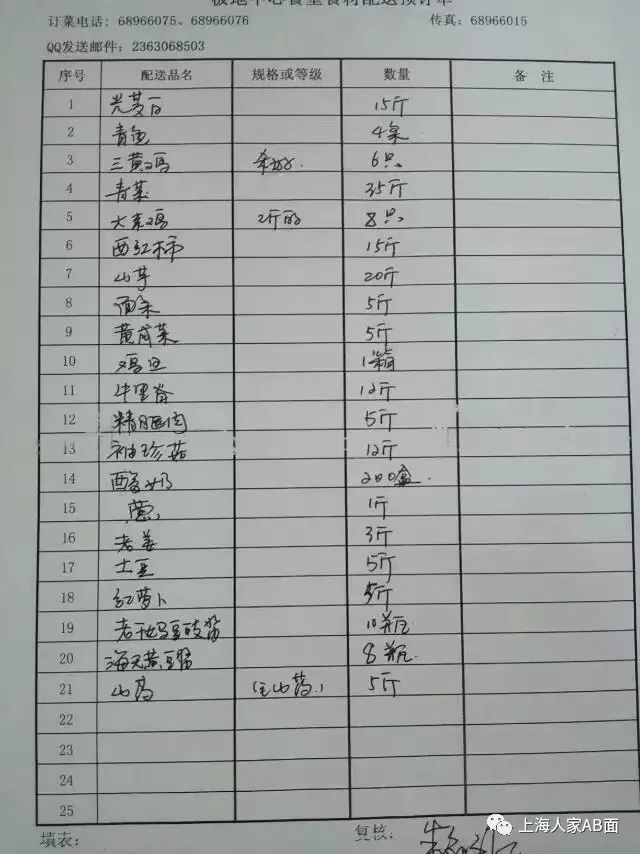 极地中心食堂食材配送预订单
订菜电话: 68966075、68966076 传真: 68966015
QQ发送邮件: 2363068503
序号 配送品名 规格或等级 数量 备 注
1 光茭白 15斤
2 青鱼 4条
3 三黄鸡 杀好 6只
4 青菜 35斤
5 大草鸡 2斤的 8只
6 西红柿 15斤
7 山芋 20斤
8 面条 5斤
9 黄芽菜 5斤
10 鸡蛋 1箱
11 牛里脊 12斤
12 精腿肉 5斤
13 袖珍菇 12斤
14 酸奶 200盒
15 葱 1斤
16 老姜 3斤
17 土豆 5斤
18 红萝卜 5斤
19 老干妈豆豉酱 10瓶
20 海天黄豆酱 8瓶
21 山药 (毛山药) 5斤
22
23
24
25
填表: 复核:
上海人家AB面